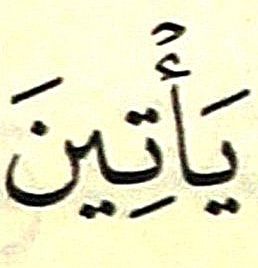 يَأْتِينَ